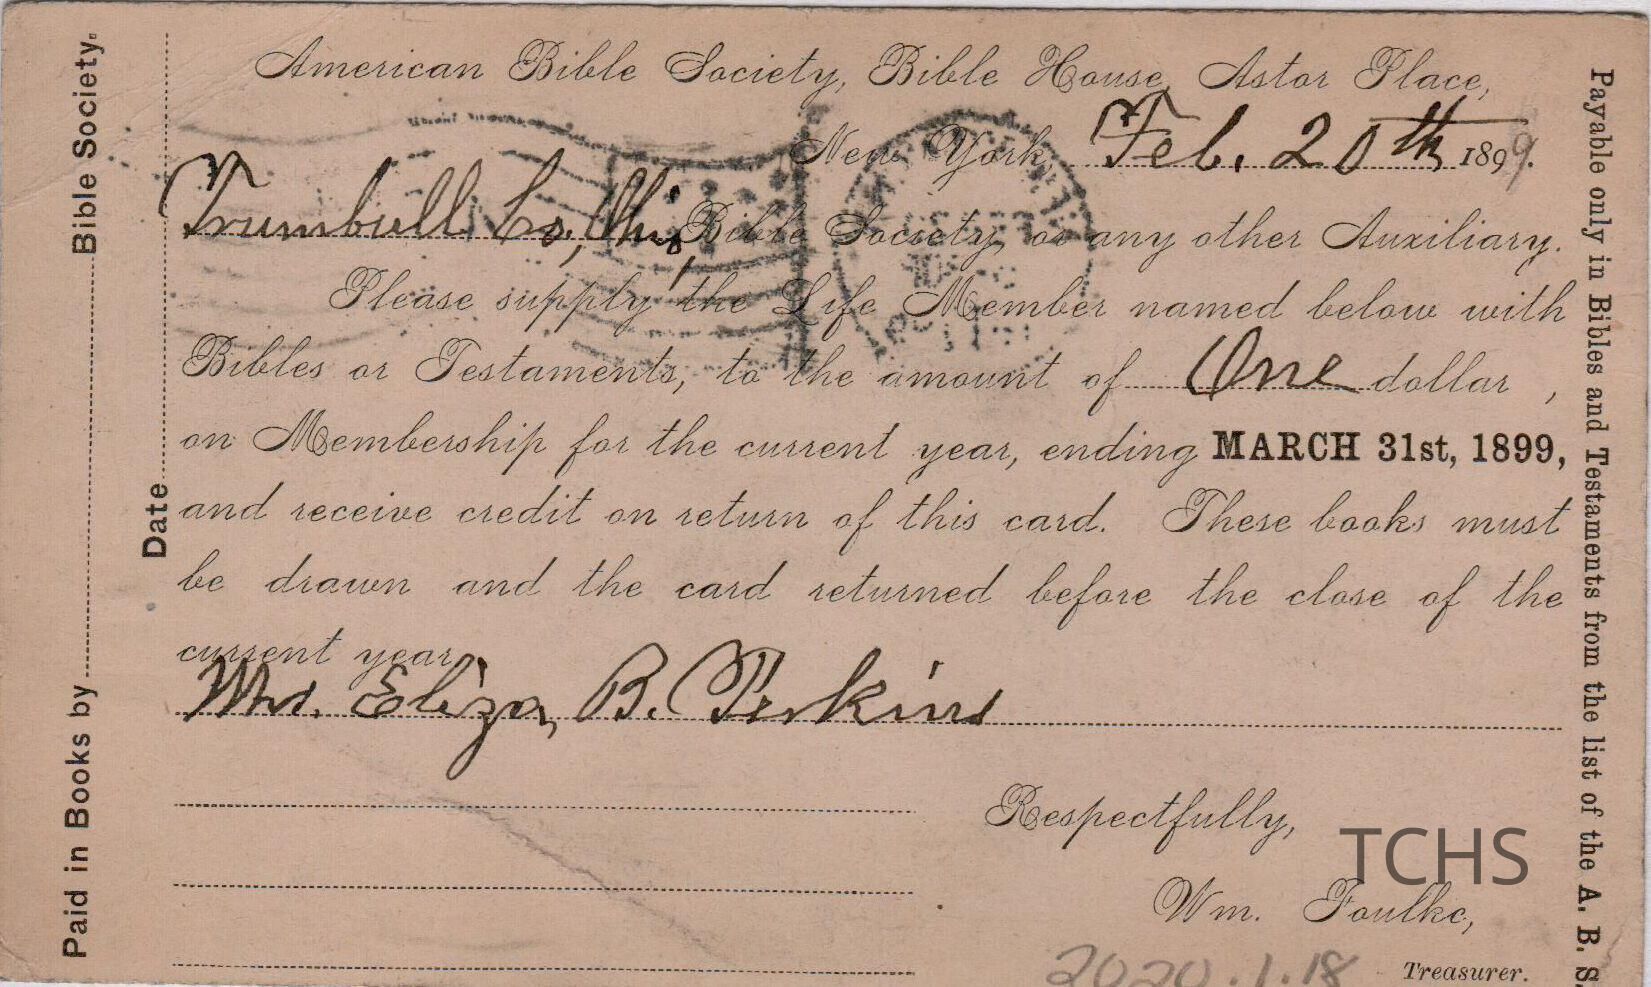 American Bible Society, Bible House, Astor Place,
New York, Feb. 20th 1899.
Trumbull Co., Ohio, Bible Society, or any other Auxiliary.
Please supply the Life Member named below with
Bibles or Testaments, to the amount of One dollar ,
on Membership for the current year, ending MARCH 31st, 1899,
and receive credit on return of this card. These books must
be drawn and the card returned before the close of the
current year.
Mrs. Eliza B. Perkins
Respectfully,
Wm. Foulke,
Treasurer.
Paid in Books by Bible Society.
Date
Payable only in Bibles and Testaments from the list of the A. B. S.
TCHS
2020.1.18